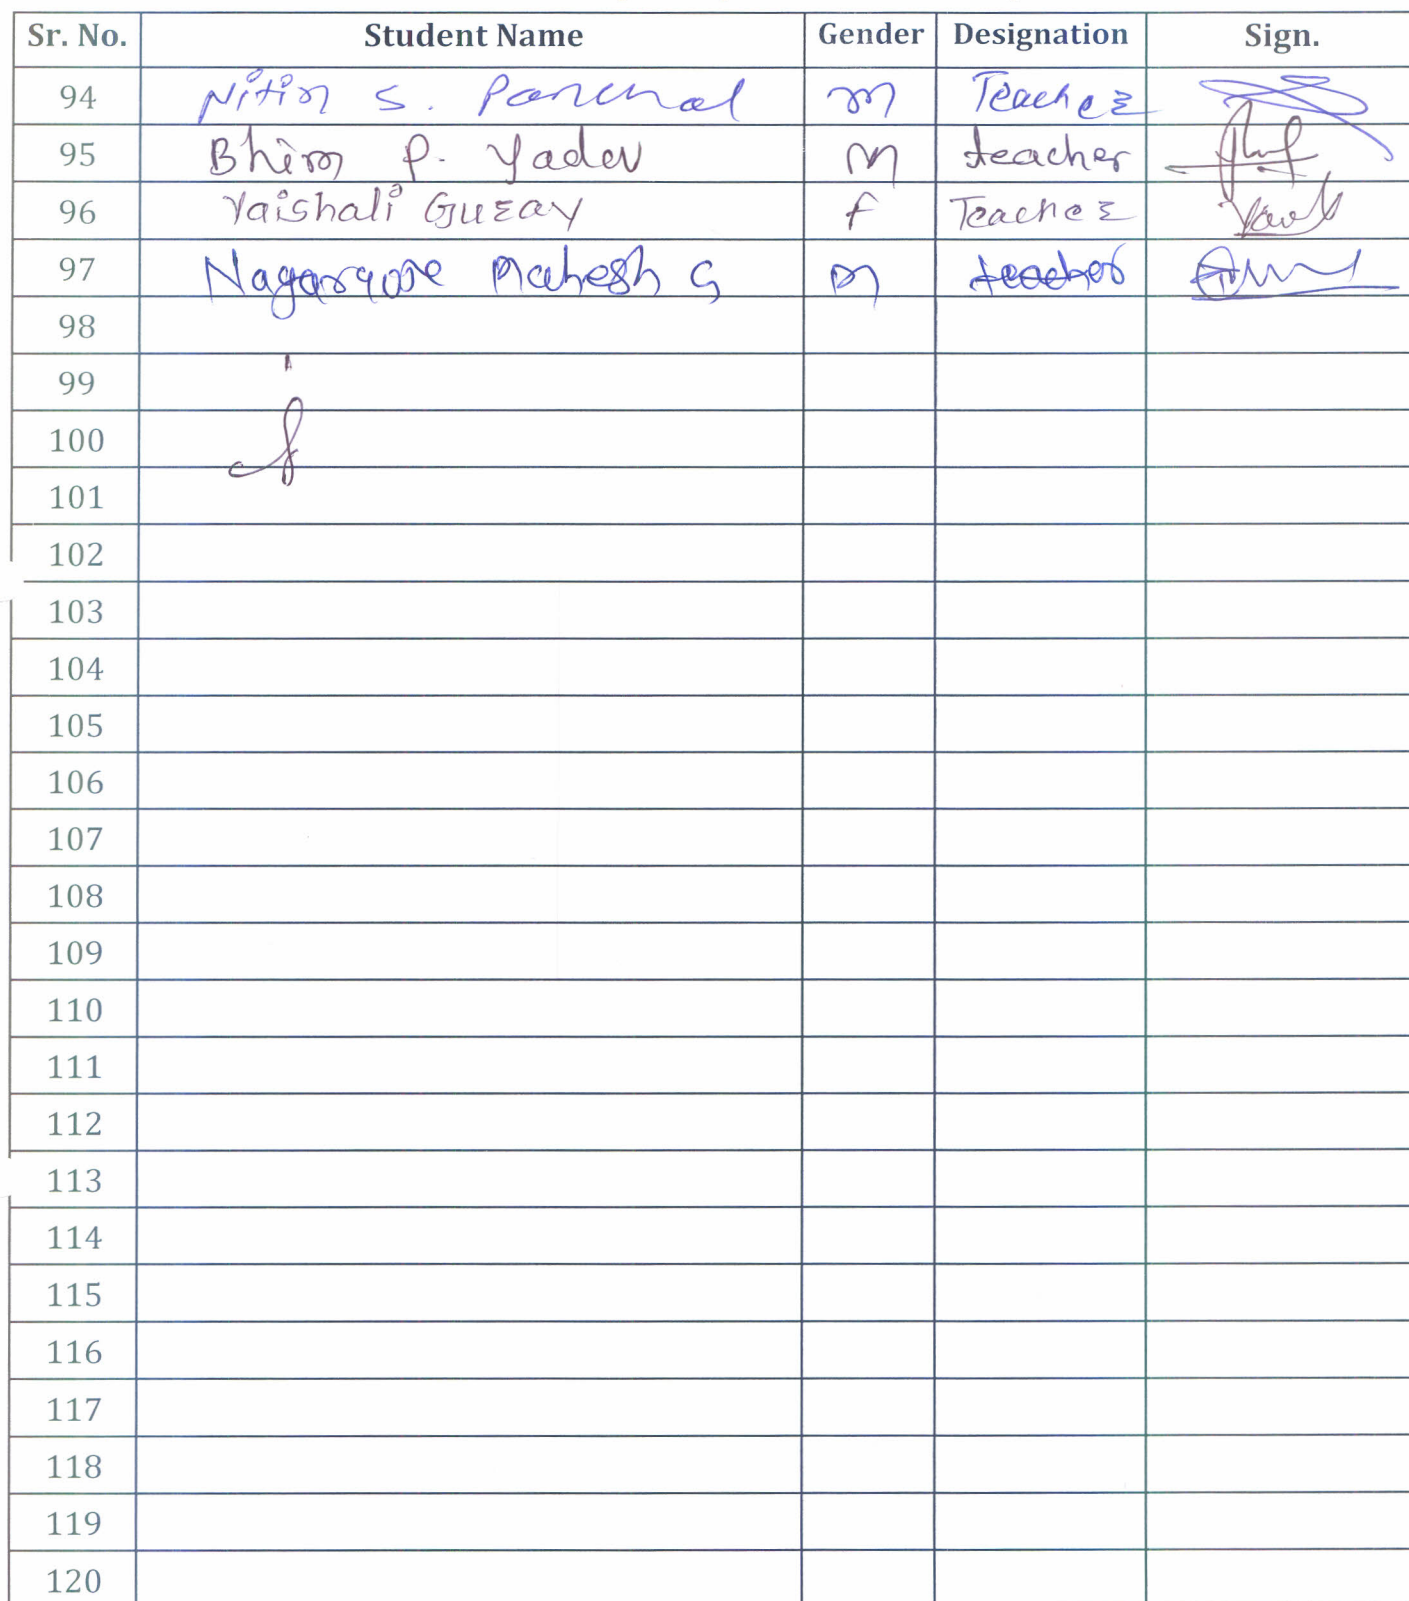 Sr. No. Student Name Gender Designation Sign.
94 Nitin S. Panchal m Teacher
95 Bhim P. Yadav M teacher
96 Vaishali Gurav f Teacher
97 Mahesh G m teacher
98
99
100
101
102
103
104
105
106
107
108
109
110
111
112
113
114
115
116
117
118
119
120